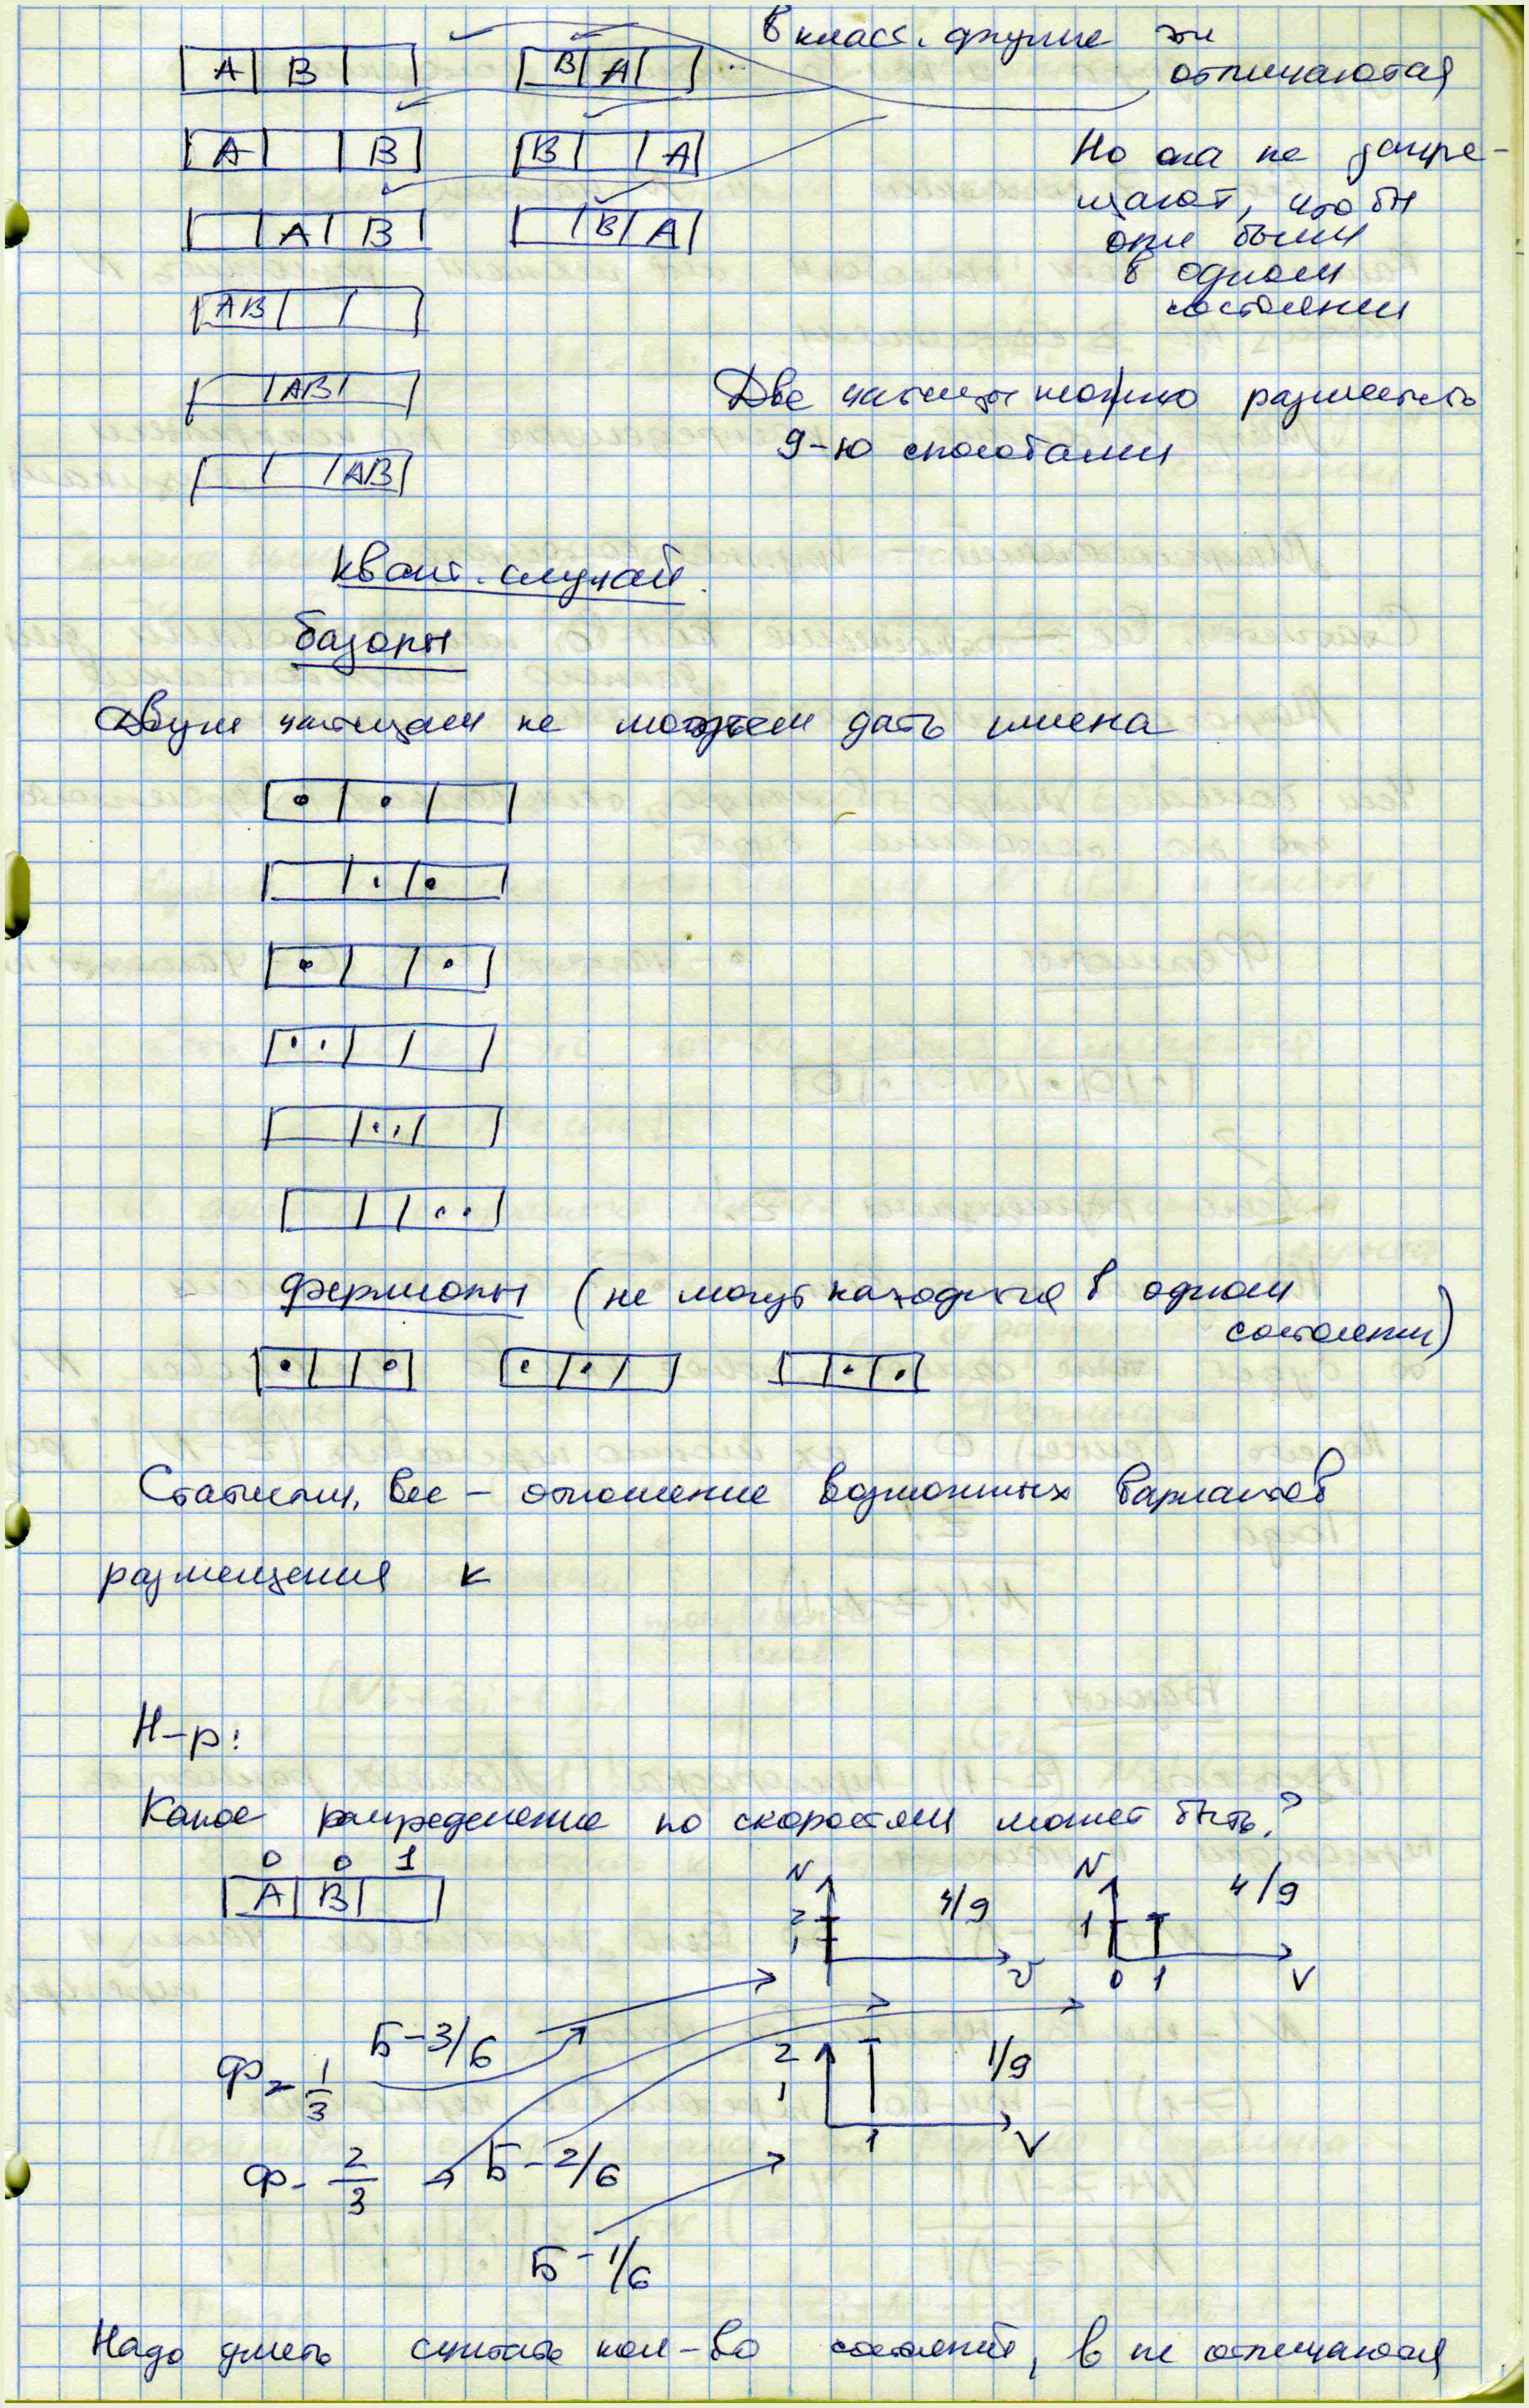 В класс. физике эти
отличаются
A B B A ...
A B B A
Но она не запре-
щают, чтобы
они были
в одном
состоянии
A B B A
AB
AB
Две частицы можно разместить
9-ю способами
AB
Квант. случай.
бозоны
Двум частицам не можем дать имена
фермионы (не могут находится в одном
состоянии)
Статистич. вес – отношение возможных вариантов
размещения к
Н-р:
Какое распределение по скоростям может быть?
0 0 1
A B
N 2 1 4/9 v
N 1 4/9 0 1 V
Б – 3/6
Ф – 1/3
2 1 1/9 1 V
Ф – 2/3 Б – 2/6
Б – 1/6
Надо уметь считать кол-во состояний, в не отличаются